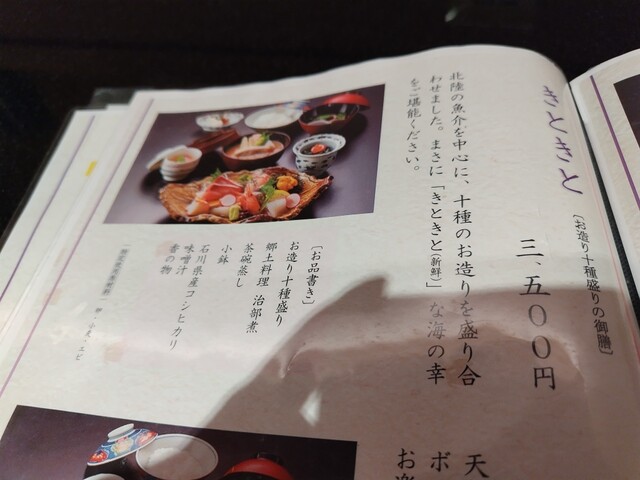 きときと
〔お造り十種盛りの御膳〕
三、五００円
北陸の魚介を中心に、十種のお造りを盛り合
わせました。まさに「きときと(新鮮)」な海の幸
をご堪能ください。
〔お品書き〕
お造り十種盛り
郷土料理 治部煮
茶碗蒸し
小鉢
石川県産コシヒカリ
味噌汁
香の物
卵・小麦・エビ
天
ボ
お楽